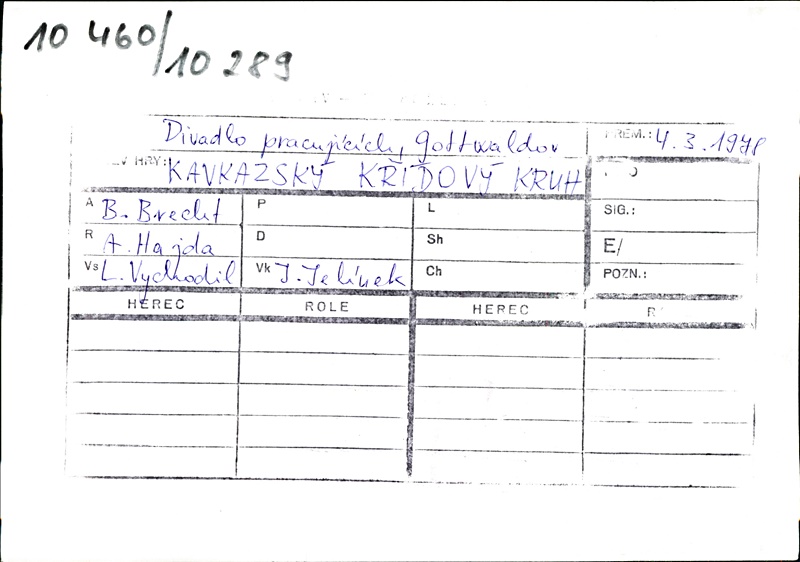 10 460/10 289
Divadlo pracujících, Gottwaldov PREM.: 4.3.1978
HRY: KAVKAZSKÝ KŘÍDOVÝ KRUH
A B. Brecht P L SIG.:
R A. Hajda D Sh E/
Vs L. Vychodil Vk J. Jelínek Ch POZN.:
HEREC ROLE HEREC